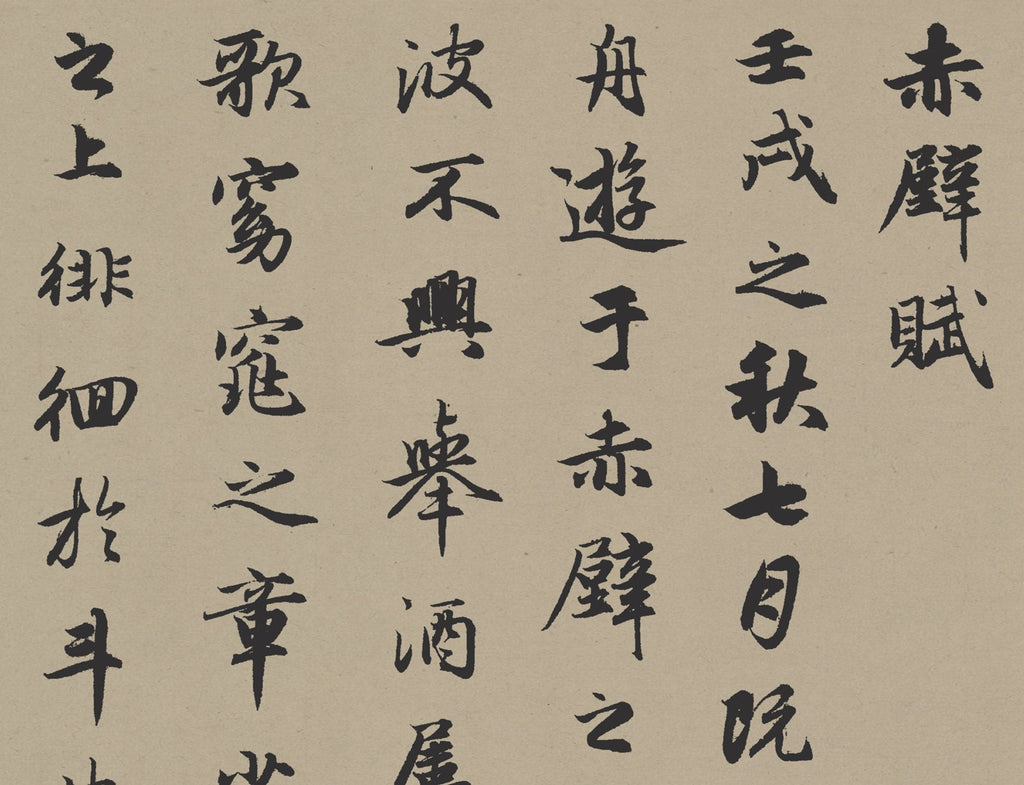 赤壁賦
壬戌之秋七月既
舟遊于赤壁之
波不興舉酒屬
歌窈窕之章少
之上徘徊於斗